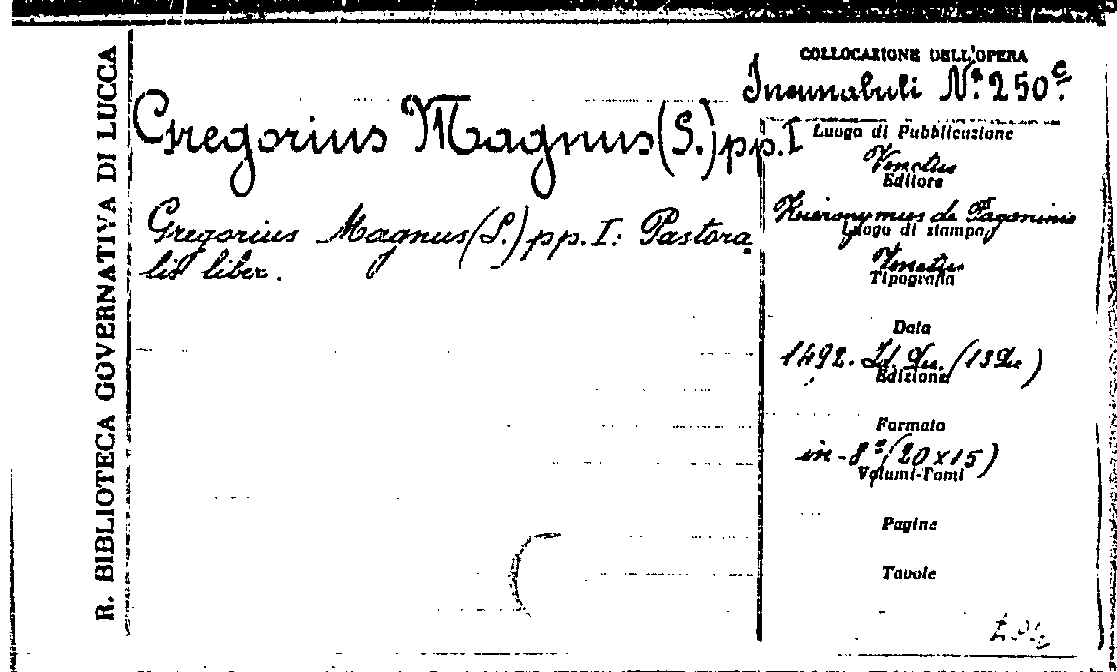 R. BIBLIOTECA GOVERNATIVA DI LUCCA
Gregorius Magnus (S.) pp. I
Gregorius Magnus (S.) pp. I: Pastora
lis liber.
COLLOCAZIONE DELL'OPERA
Incunabuli N.º 250 c.
Luogo di Pubblicazione
Venetiis
Editore
Hieronymus de Paganinis
Luogo di stampa
Venetiis
Tipografia
Data
1492. Id. Dec. (13 Dec)
Edizione
Formato
in-8º (20 x 15)
Volumi-Tomi
Pagine
Tavole